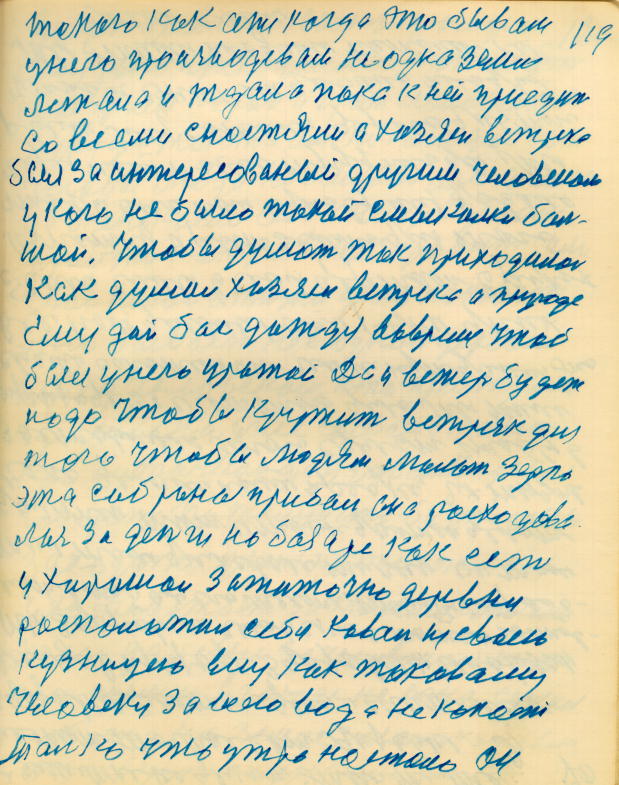 такого как они когда это бывам 119
у него производевам не одна земля
лежала и ждала пока к ней приедут
со всеми снастями а хозяин ветряка
был заинтересованый другим человеком
у кого не было такой смыколки бал-
шой. чтобы думат так приходилас
как думал хозяин ветряка о природе
ему дай бог дождя вовримя чтоб
был у него урожай Да и ветер будет
надо чтобы кружит ветряк для
того чтобы людям малот зерно
эта собрана прибал она расходова
лас за денги на базаре как сет
у хорошой зажиточно деревни
расположил себя ковал из своею
кузницею ему как таковаму
человеку за лето вода не капает
Толко что утро настало он